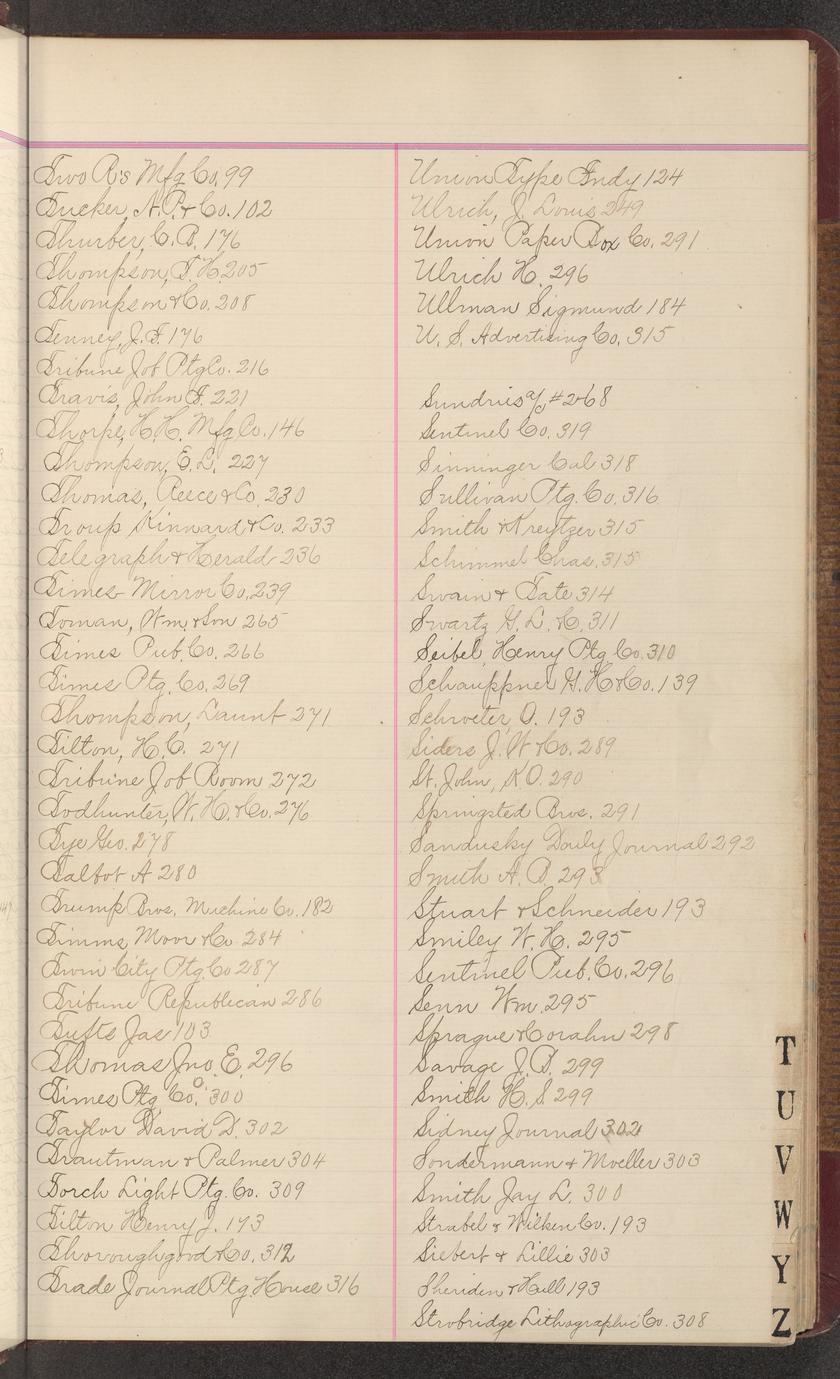 Two R's Mfg Co. 99
Tucker, N. P. & Co. 102
Thurber, C. B. 176
Thompson, T. H. 205
Thompson & Co. 208
Tenney, J. F. 176
Tribune Job Ptg Co. 216
Travis, John F. 221
Thorpe, H. H. Mfg Co. 146
Thompson, E. L. 227
Thomas, Reece & Co. 230
Troup Kinnard & Co. 233
Telegraph & Herald 236
Times-Mirror Co. 239
Toman, Wm. & Son 265
Times Pub. Co. 266
Times Ptg. Co. 269
Thompson, Launt 271
Tilton, H. C. 271
Tribune Job Room 272
Todhunter, W. H. & Co. 276
Tye Geo. 278
Talbot A 280
Trump Bros. Machine Co. 182
Timms Moor & Co. 284
Twin City Ptg. Co 287
Tribune Republican 286
Tufts Jas 103
Thomas Jno. E. 296
Times Ptg Co. 300
Taylor David D. 302
Trautman & Palmer 304
Torch Light Ptg. Co. 309
Tilton Henry J. 193
Thoroughgood & Co. 312
Trade Journal Ptg. House 316
Union Type Fndy 124
Ulrich, J. Louis 249
Union Paper Box Co. 291
Ulrich H. 296
Ullman Sigmund 184
U. S. Advertising Co. 315
Sundries a/c #268
Sentinel Co. 319
Sinninger Cal 318
Sullivan Ptg. Co. 316
Smith & Kreytzer 315
Schimmel Chas. 315
Swain & Tate 314
Swartz G. L. H. 311
Seibel Henry Ptg Co. 310
Schauppner G. H & Co. 139
Schroeter O. 193
Siders J. W & Co. 289
St. John, K O. 290
Springsted Bros. 291
Sandusky Daily Journal 292
Smith A. B. 293
Stuart & Schneider 193
Smiley W. H. 295
Sentinel Pub. Co. 296
Senn Wm. 295
Sprague & Corahn 298
Savage J. B. 299
Smith H. S 299
Sidney Journal 302
Sondermann & Moeller 303
Smith Jay L. 300
Strabel & Wilken Co. 193
Siebert & Lillie 303
Sheriden & Hill 193
Strobridge Lithographic Co. 308
T
U
V
W
Y
Z